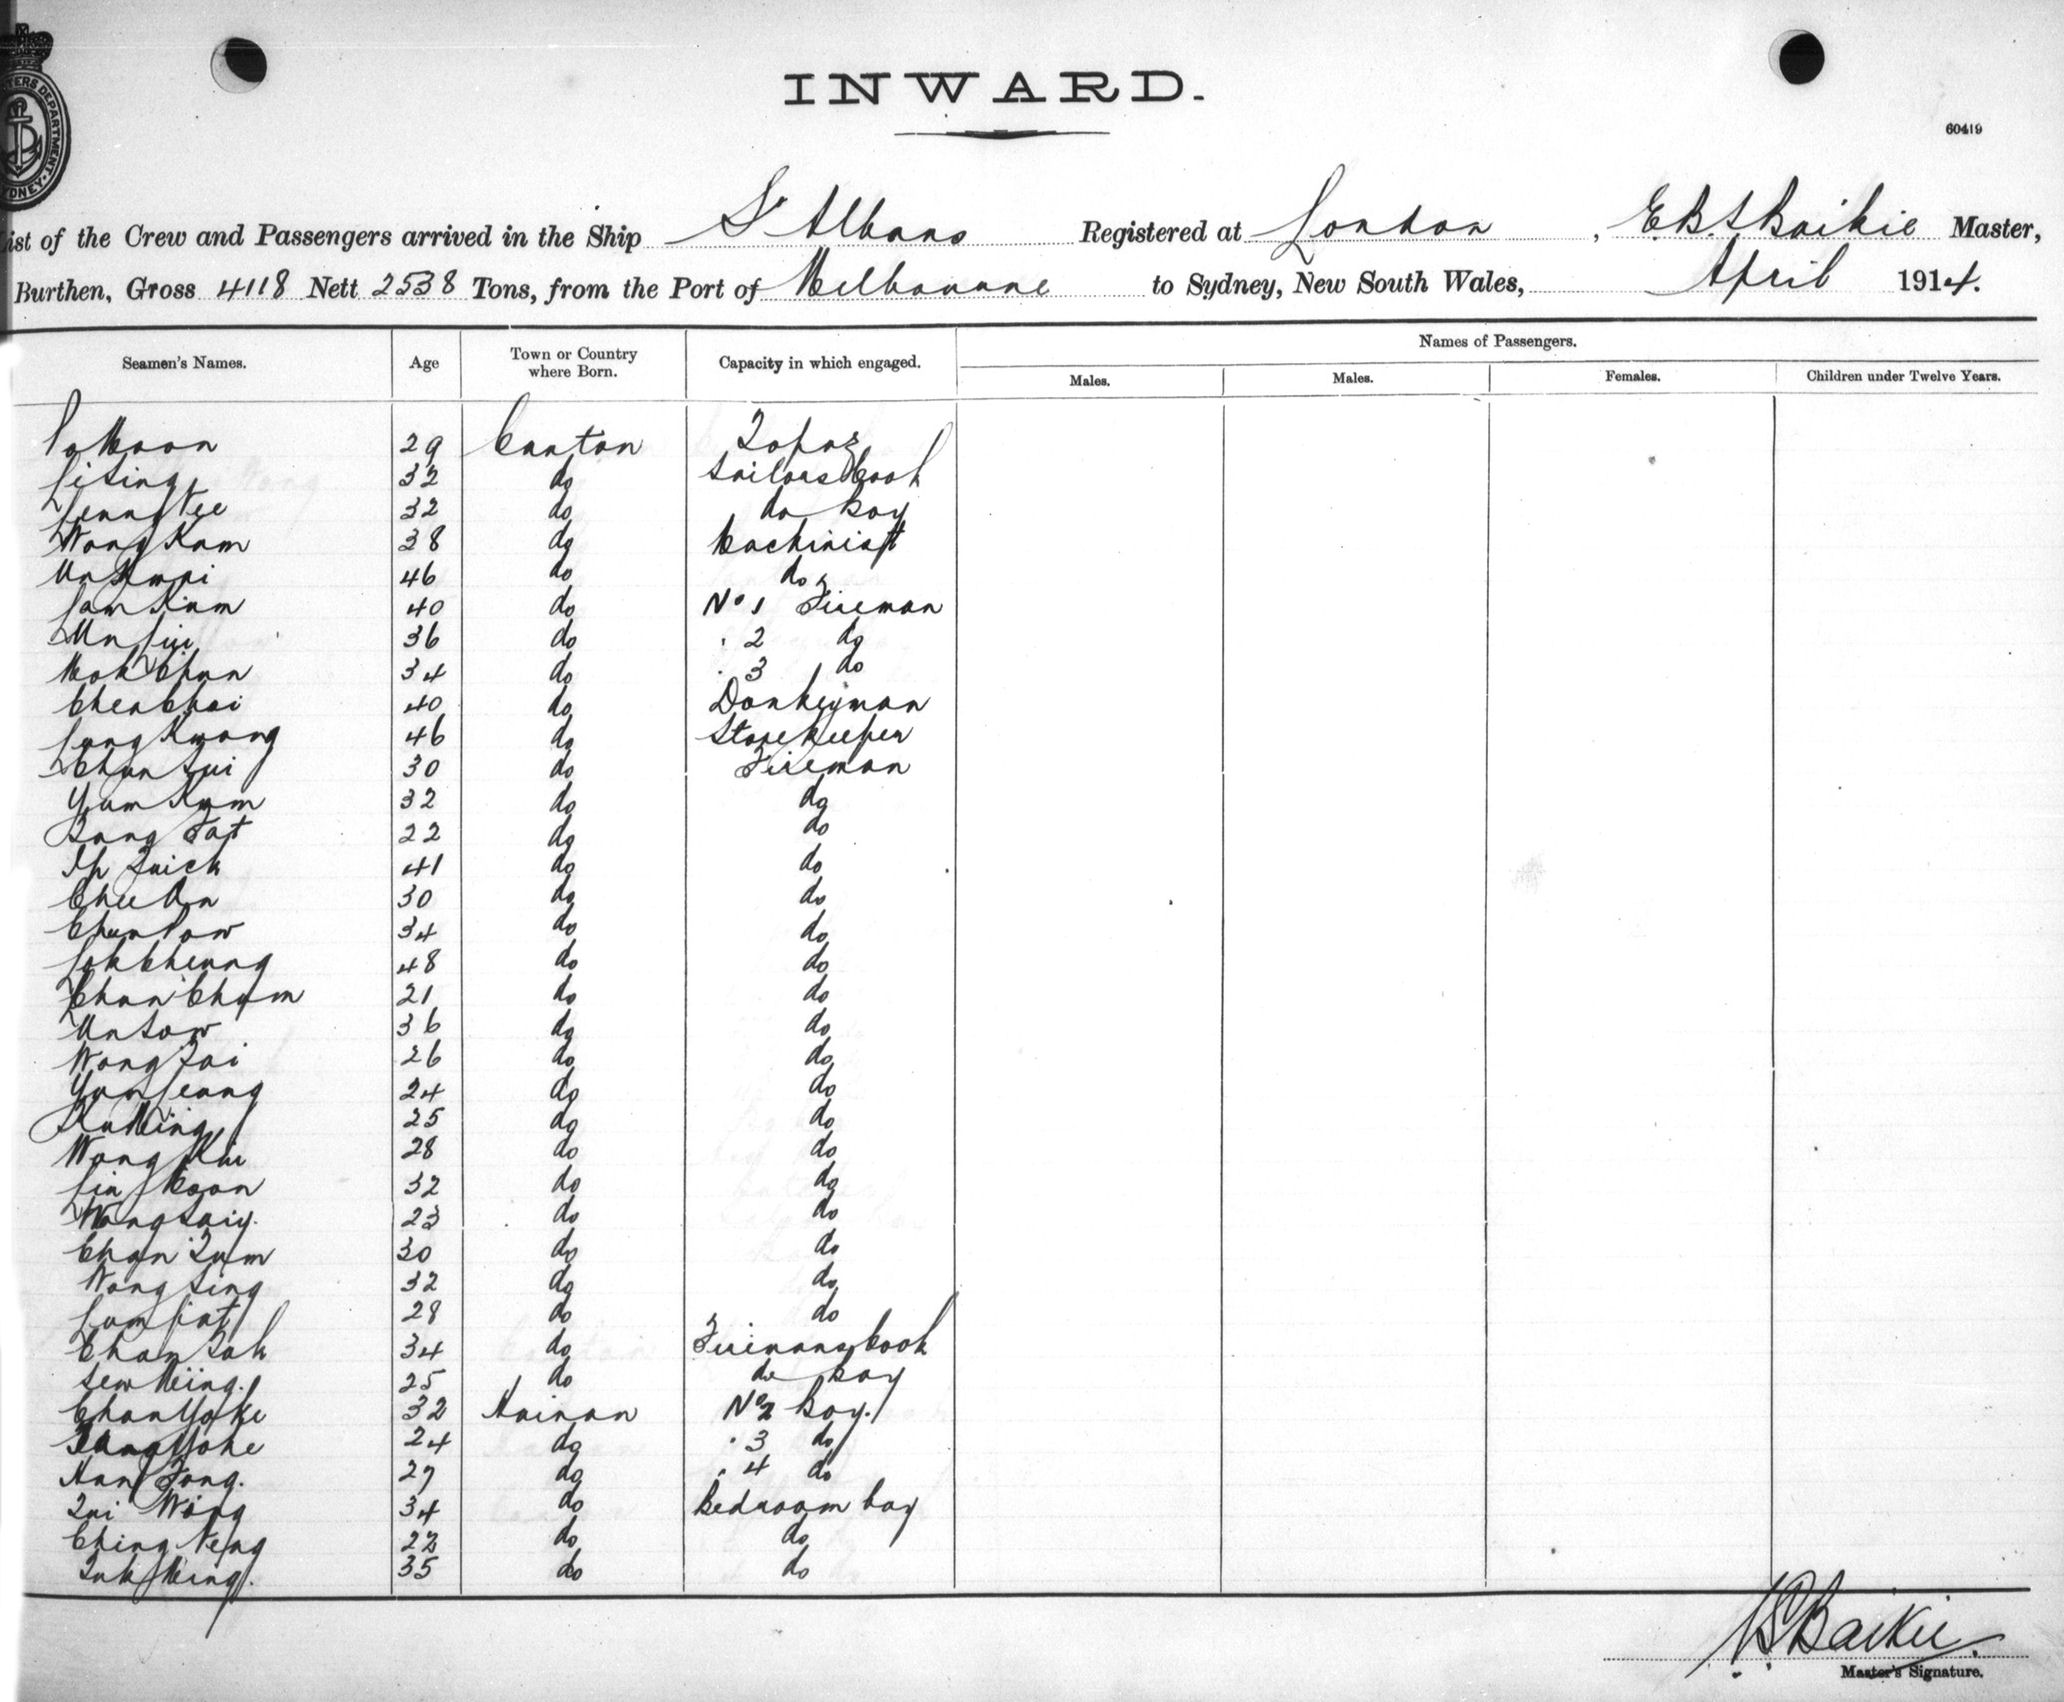 INWARD.
60419
List of the Crew and Passengers arrived in the Ship St Albans Registered at London, Baikie Master,
Burthen, Gross 4118 Nett 2538 Tons, from the Port of Melbourne to Sydney, New South Wales, April 1914.
Names of Passengers.
Seamen's Names. Age Town or Country where Born. Capacity in which engaged. Males. Males. Females. Children under Twelve Years.
29 Canton Topaz
Li Sing 32 do Sailors Cook
Leung Yee 32 do do Boy
Wong Kam 38 do Machinist
46 do do
Lam Kam 40 do No 1 Fireman
Un Lui 36 do " 2 do
Mok Chun 34 do " 3 do
Chen Choi 40 do Donkeyman
Lung Kwong 46 do Storekeeper
Chun Sui 30 do Fireman
Yum Kum 32 do do
Tang Fat 22 do do
Ip Tuick 41 do do
Chee On 30 do do
Chun Pow 34 do do
Lok Cheung 48 do do
Chan Chum 21 do do
Un Sow 36 do do
Wong Tai 26 do do
Yun Leung 24 do do
Ku Ming 25 do do
Wong Kui 28 do do
Lin Moon 32 do do
Wong Saiy. 23 do do
Chan Tum 30 do do
Wong Sing 32 do do
Lum Fat 28 do do
Chan Tak 34 do Firemans Cook
Sew Ming. 25 do do Boy
Chan Yoke 32 Hainan No 2 Boy.
Yoke 24 do " 3 do
Han Fong. 27 do " 4 do
Tui Wong 34 do Bedroom boy
Ching Neng 22 do do
Tuk Ming. 35 do do
Baikie
Master's Signature.